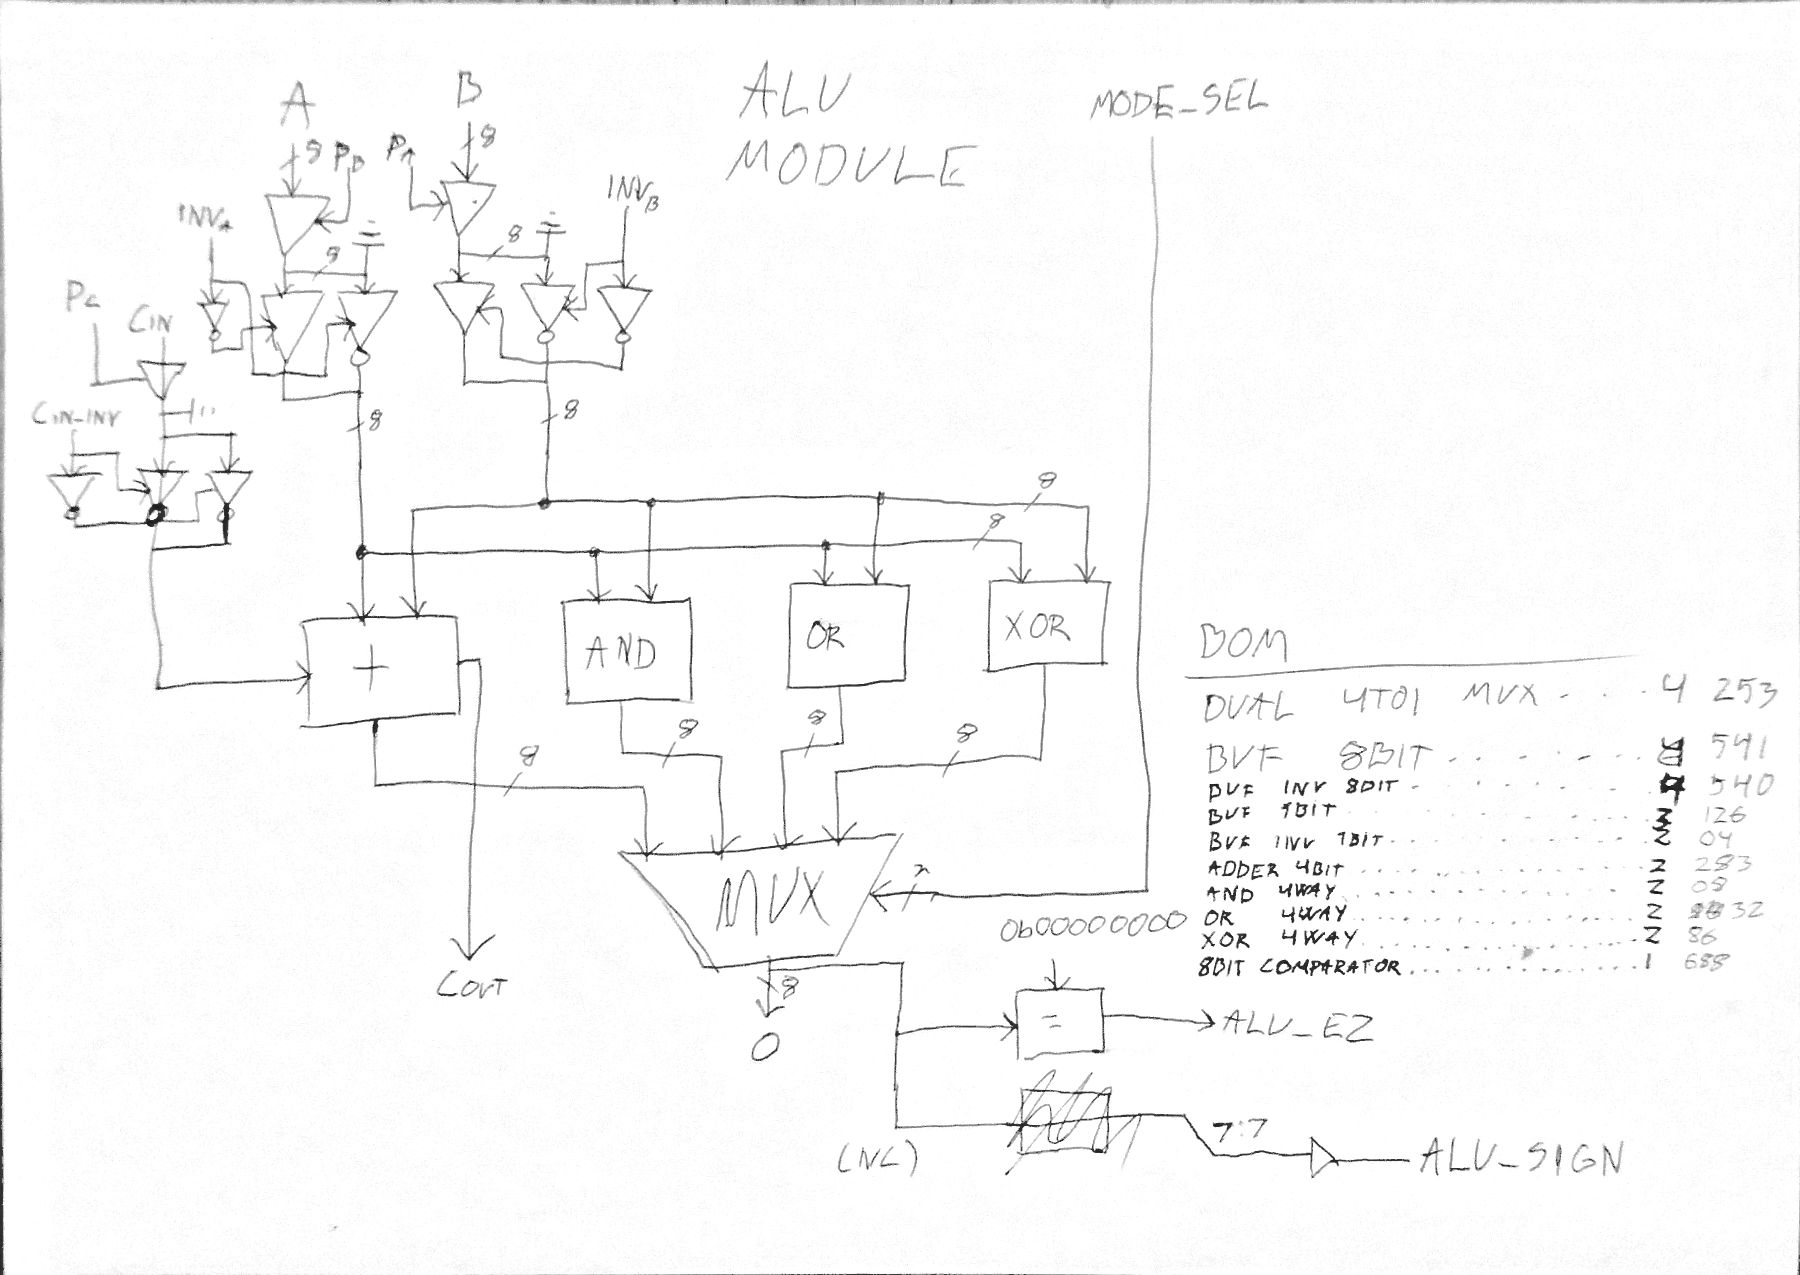 A
B
ALU
MODULE
MODE_SEL
8
8
INVA
INVB
8
8
PC
CIN
CIN-INV
8
8
8
8
+
AND
OR
XOR
8
8
8
8
MUX
COUT
8
O
0b00000000
=
ALU_EZ
7:7
ALU_SIGN
BOM
DUAL 4TO1 MUX - - - - 4 253
BUF 8BIT 541
BUF INV 8BIT 540
BUF 1BIT 126
BUF INV 1BIT 2 04
ADDER 4BIT 2 283
AND 4WAY 2 08
OR 4WAY 2 32
XOR 4WAY 2 86
8BIT COMPARATOR 1 688